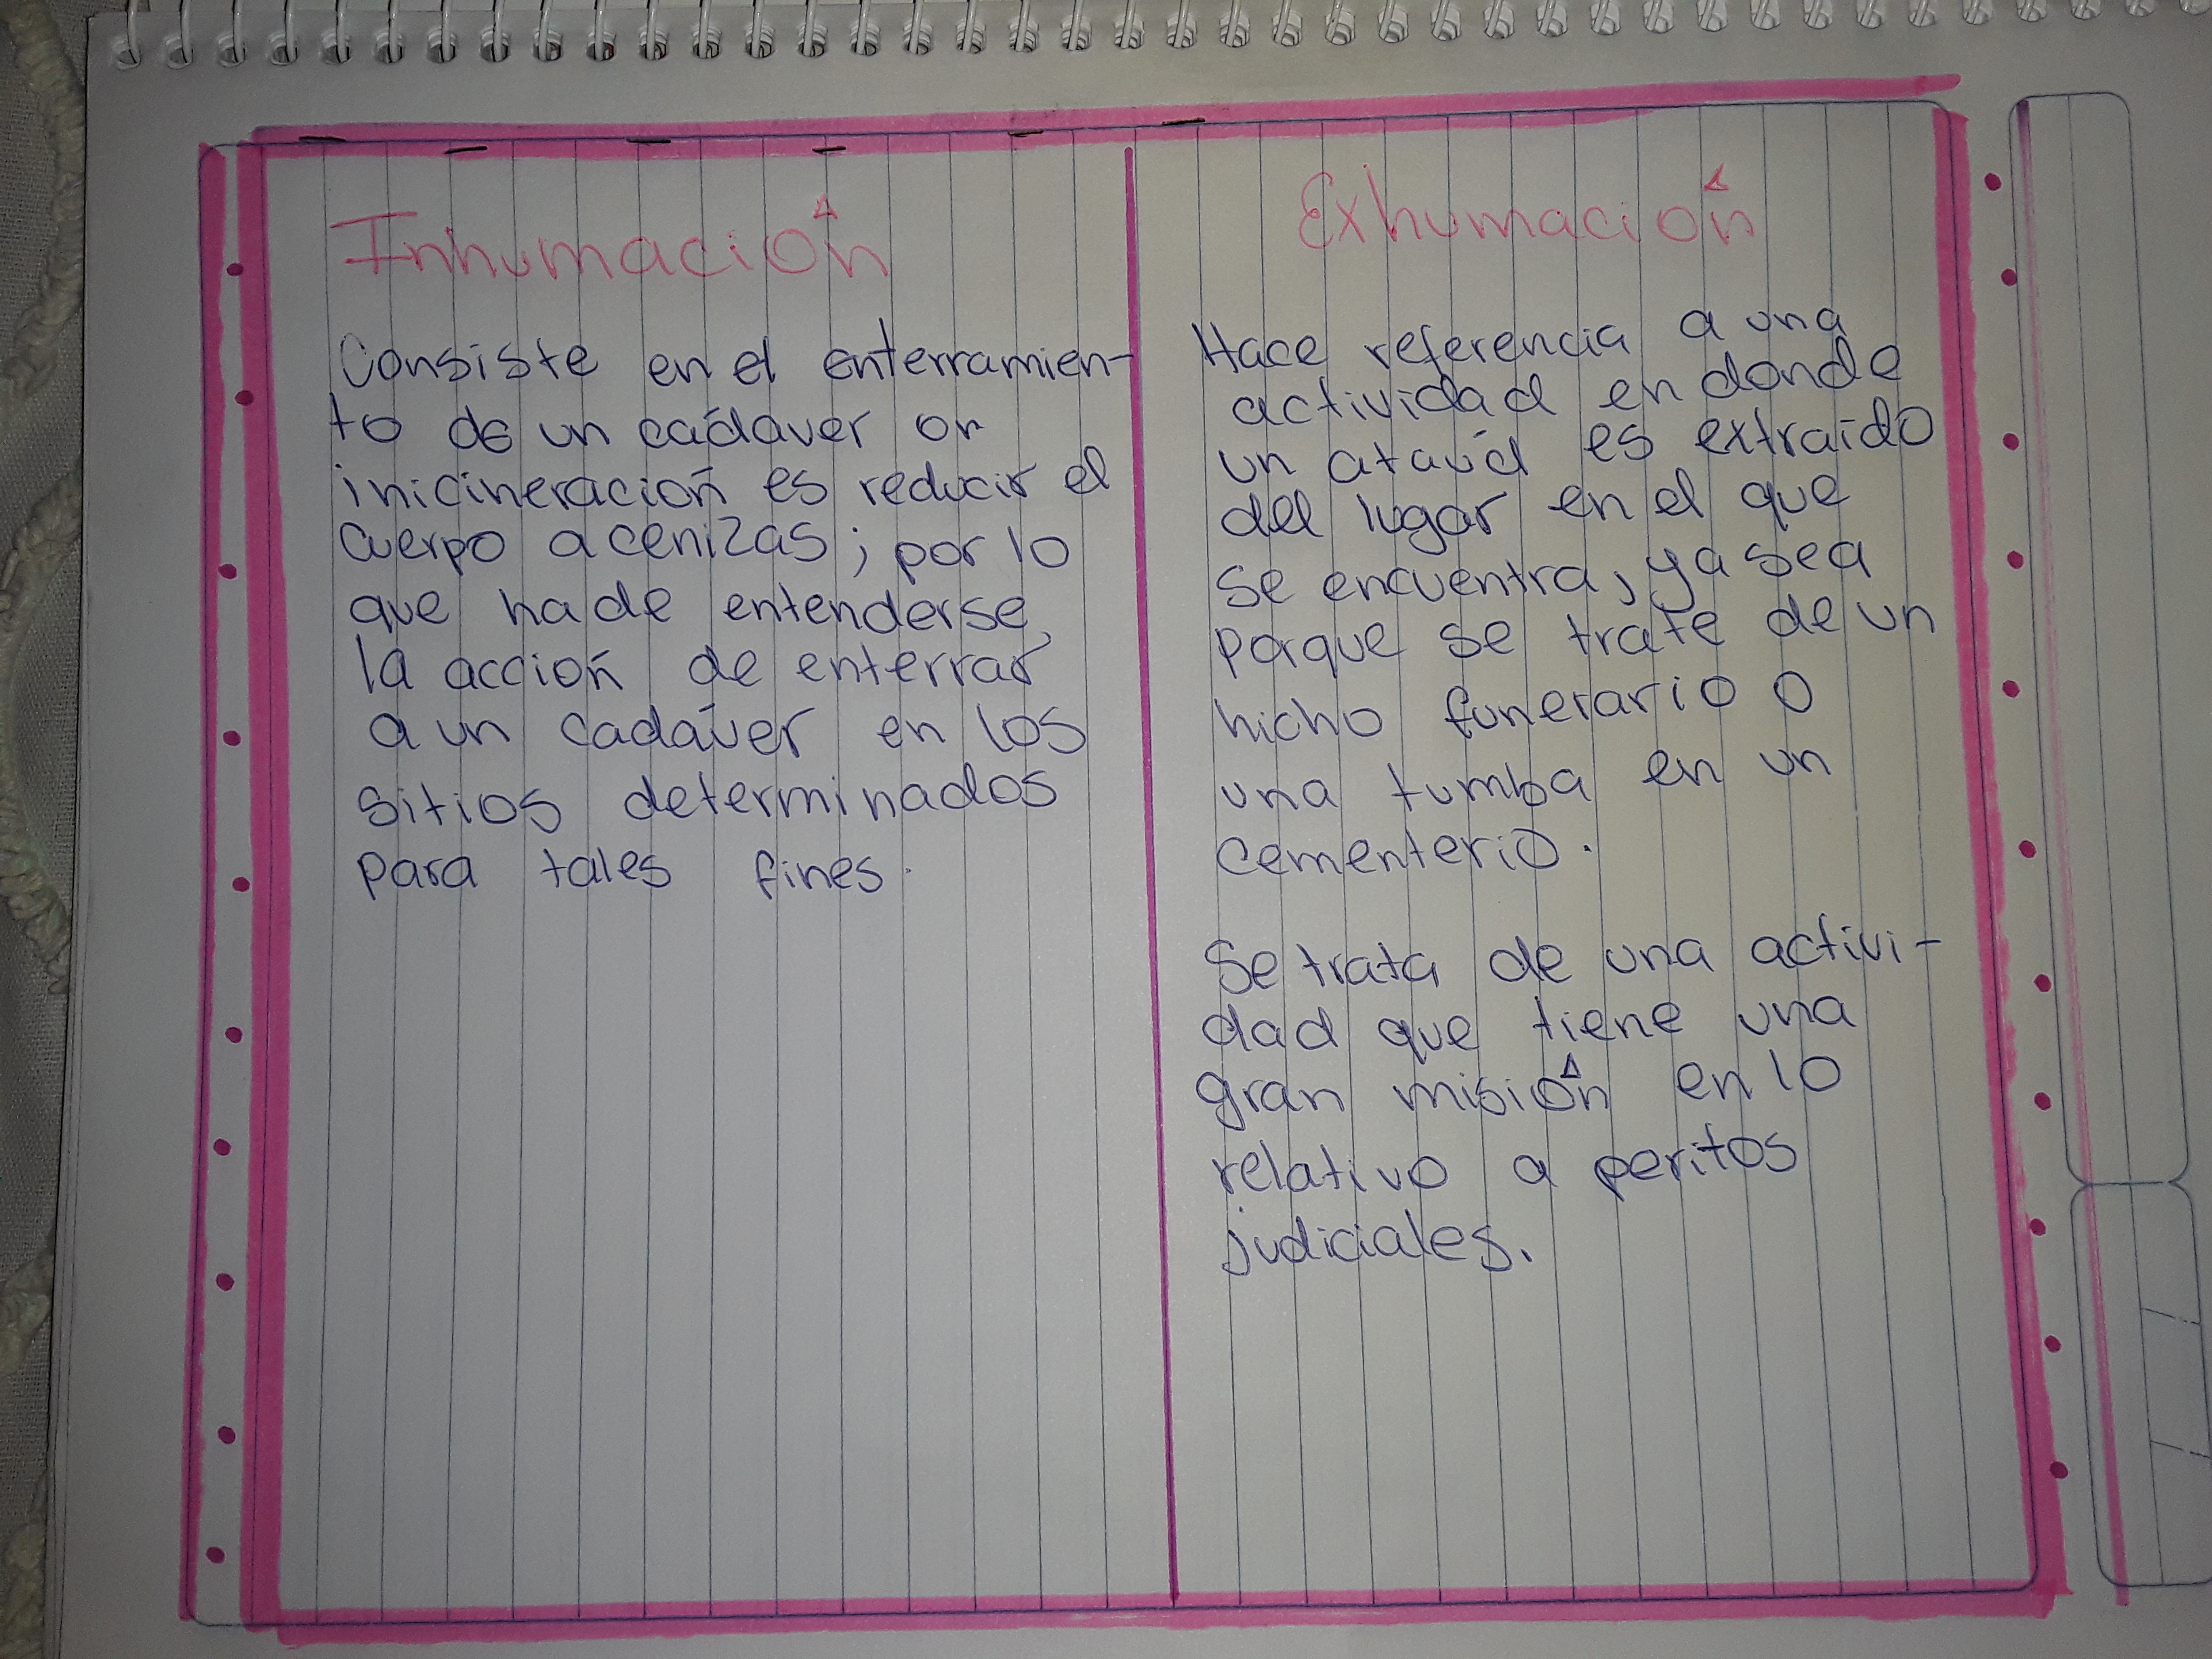 Inhumación
Consiste en el enterramien-
to de un cadáver or
inicineración es reducir el
cuerpo a cenizas; por lo
que ha de entenderse,
la acción de enterrar
a un cadáver en los
sitios determinados
para tales fines.
Exhumación
Hace referencia a una
actividad en donde
un ataúd es extraído
del lugar en el que
se encuentra, ya sea
porque se trate de un
nicho funerario o
una tumba en un
cementerio.
Se trata de una activi-
dad que tiene una
gran misión en lo
relativo a peritos
judiciales.